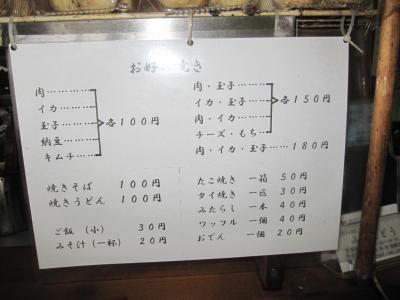 お好み焼き
肉…………
イカ…………
玉子…………
納豆…………
キムチ………
各100円
肉・玉子…………
イカ・玉子………
肉・イカ…………
チーズ・もち……
各150円
肉・イカ・玉子……180円
焼きそば 100円
焼きうどん 100円
ご飯(小) 30円
みそ汁(一杯) 20円
たこ焼き 一箱 50円
タイ焼き 一匹 30円
みたらし 一本 40円
ワッフル 一個 40円
おでん 一個 20円